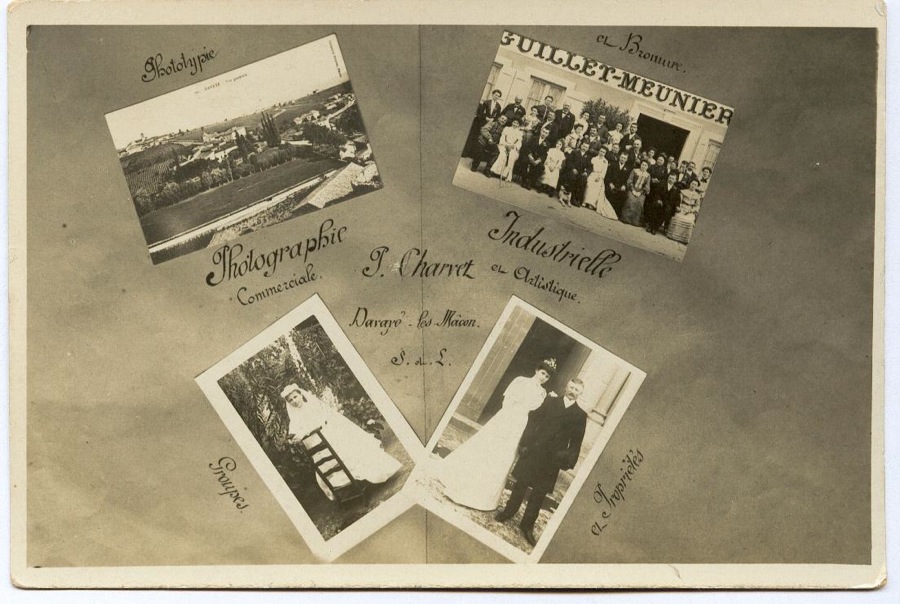 Phototypie
et Bromure.
DAVAYÉ
GUILLET-MEUNIER
Photographie
Commerciale.
P. Charvet
Industrielle
et Artistique.
Davayé-les-Mâcon.
S. et L.
Groupes.
et Propriétés